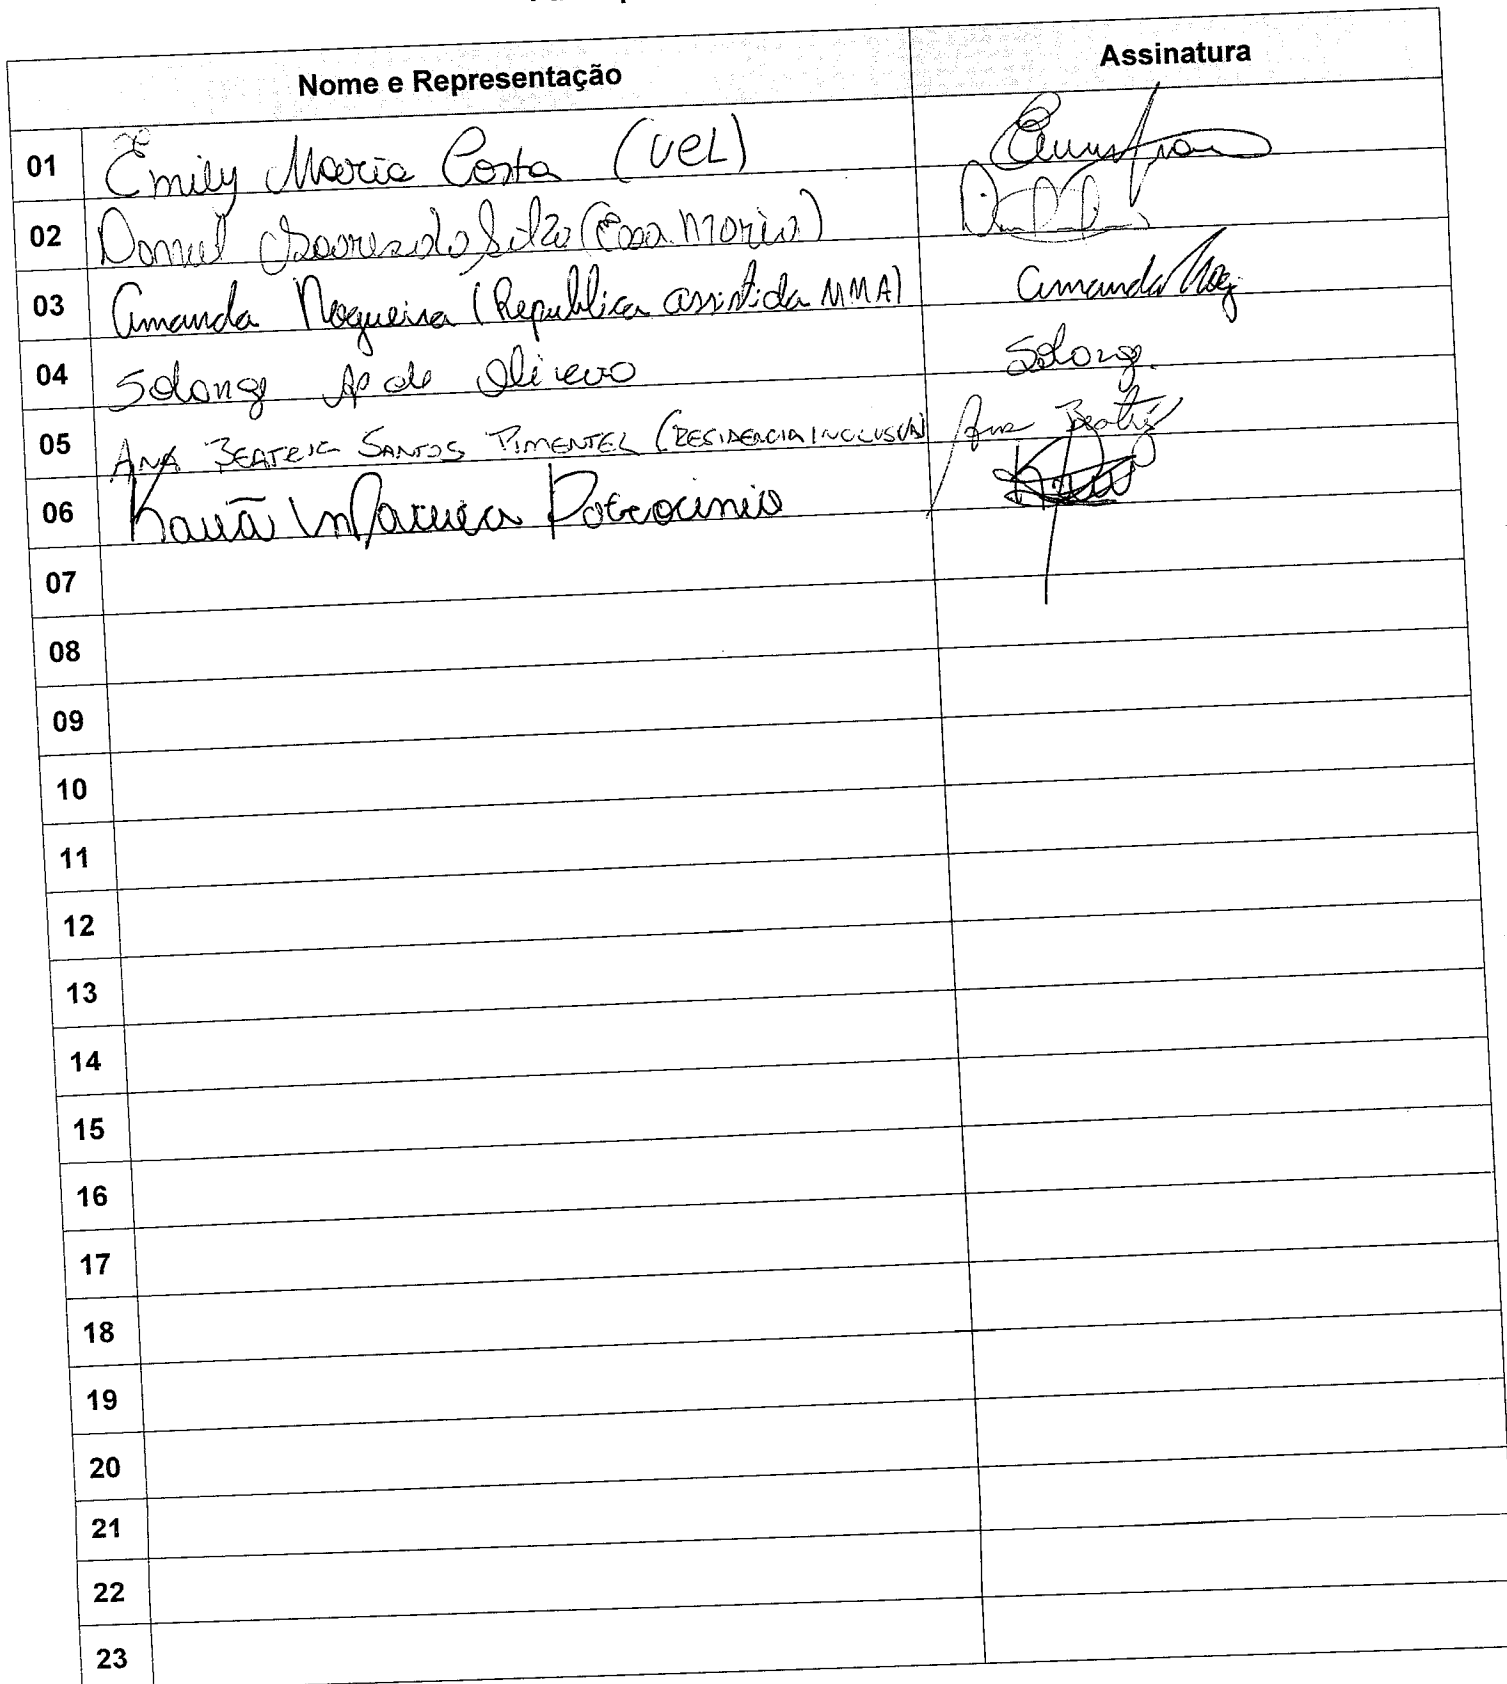 Nome e Representação Assinatura
01 Emily Maria Costa (UEL)
02 Daniel Soares da Silva (Casa Maria)
03 Amanda Nogueira (Republica assistida MMA) Amanda Nog
04 Solange Ap de Oliveira Solange.
05 ANA BEATRIZ SANTOS PIMENTEL (RESIDENCIA INCLUSIVA) Ana Beatriz
06 Kauã Patrocinio
07
08
09
10
11
12
13
14
15
16
17
18
19
20
21
22
23